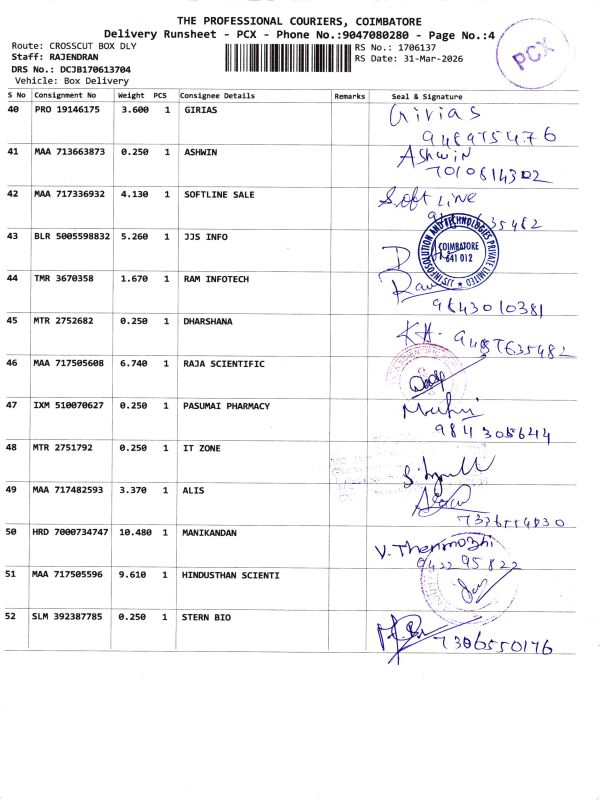 THE PROFESSIONAL COURIERS, COIMBATORE
Delivery Runsheet - PCX - Phone No.:9047080280 - Page No.:4
Route: CROSSCUT BOX DLY
Staff: RAJENDRAN
DRS No.: DCJB170613704
Vehicle: Box Delivery
RS No.: 1706137
RS Date: 31-Mar-2026
PCX
S No Consignment No Weight PCS Consignee Details Remarks Seal & Signature
40 PRO 19146175 3.600 1 GIRIAS Girias
9489755476
41 MAA 713663873 0.250 1 ASHWIN Ashwin
7010814302
42 MAA 717336932 4.130 1 SOFTLINE SALE Soft Line
43 BLR 5005598832 5.260 1 JJS INFO
COIMBATORE
641 012
44 TMR 3670358 1.670 1 RAM INFOTECH
9843010381
45 MTR 2752682 0.250 1 DHARSHANA
9487635482
46 MAA 717505608 6.740 1 RAJA SCIENTIFIC
47 IXM 510070627 0.250 1 PASUMAI PHARMACY
48 MTR 2751792 0.250 1 IT ZONE
49 MAA 717482593 3.370 1 ALIS
50 HRD 7000734747 10.480 1 MANIKANDAN V. Thenmozhi
9422295822
51 MAA 717505596 9.610 1 HINDUSTHAN SCIENTI
52 SLM 392387785 0.250 1 STERN BIO
7386550176